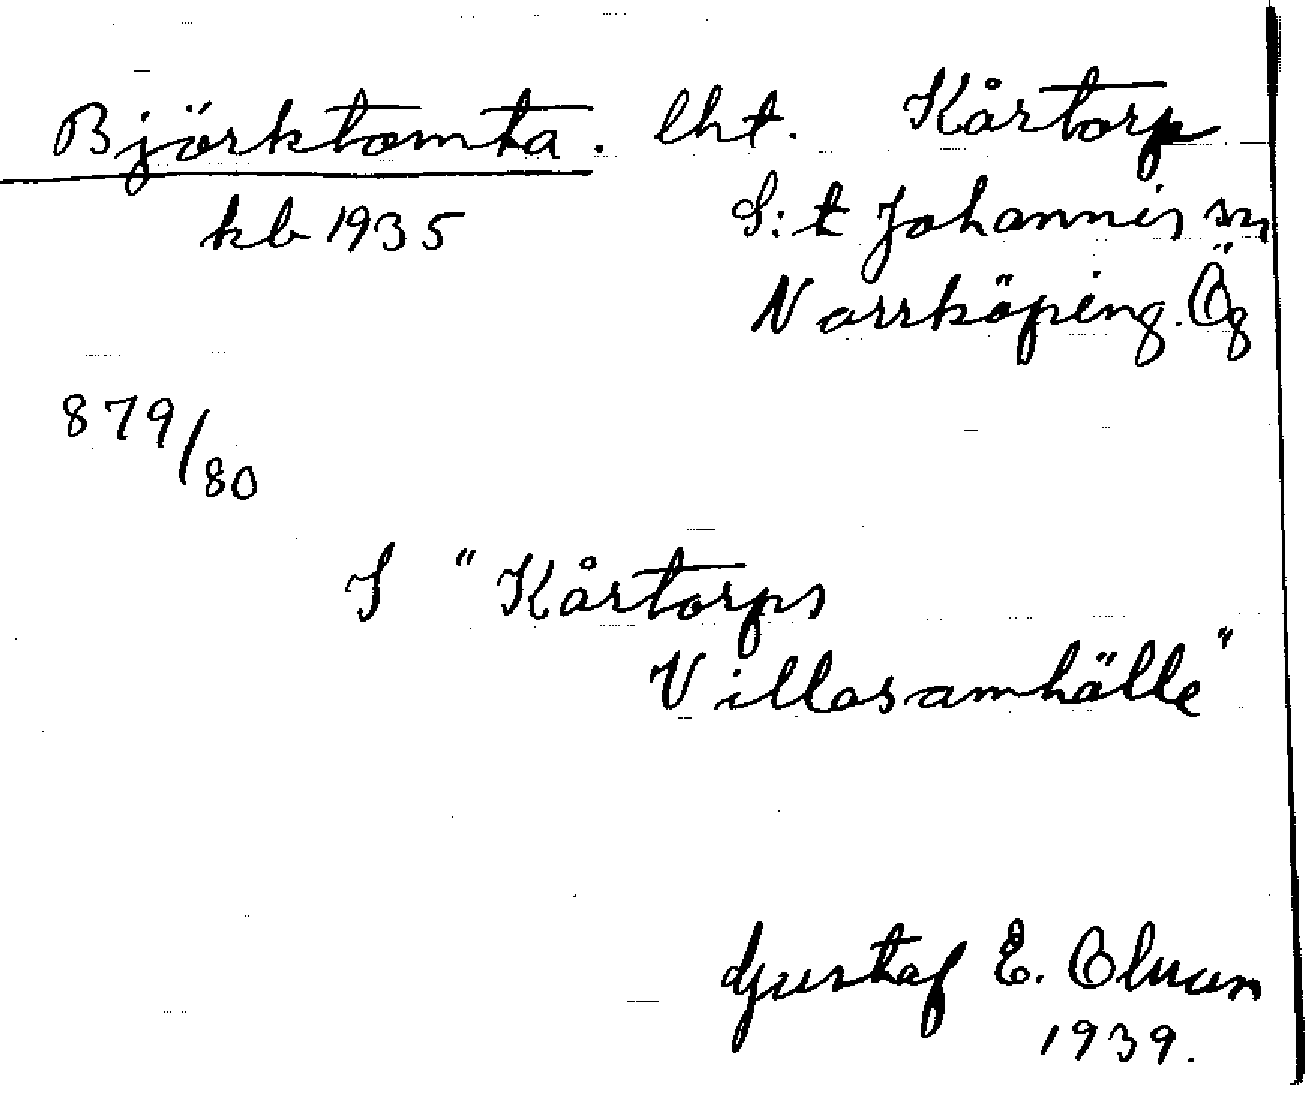 Björktomta. lht. Kårtorp
kb 1935 S:t Johannis sn
Norrköping. Ög
879/80
I "Kårtorps
Villasamhälle"
Gustaf E. Olsson
1939.